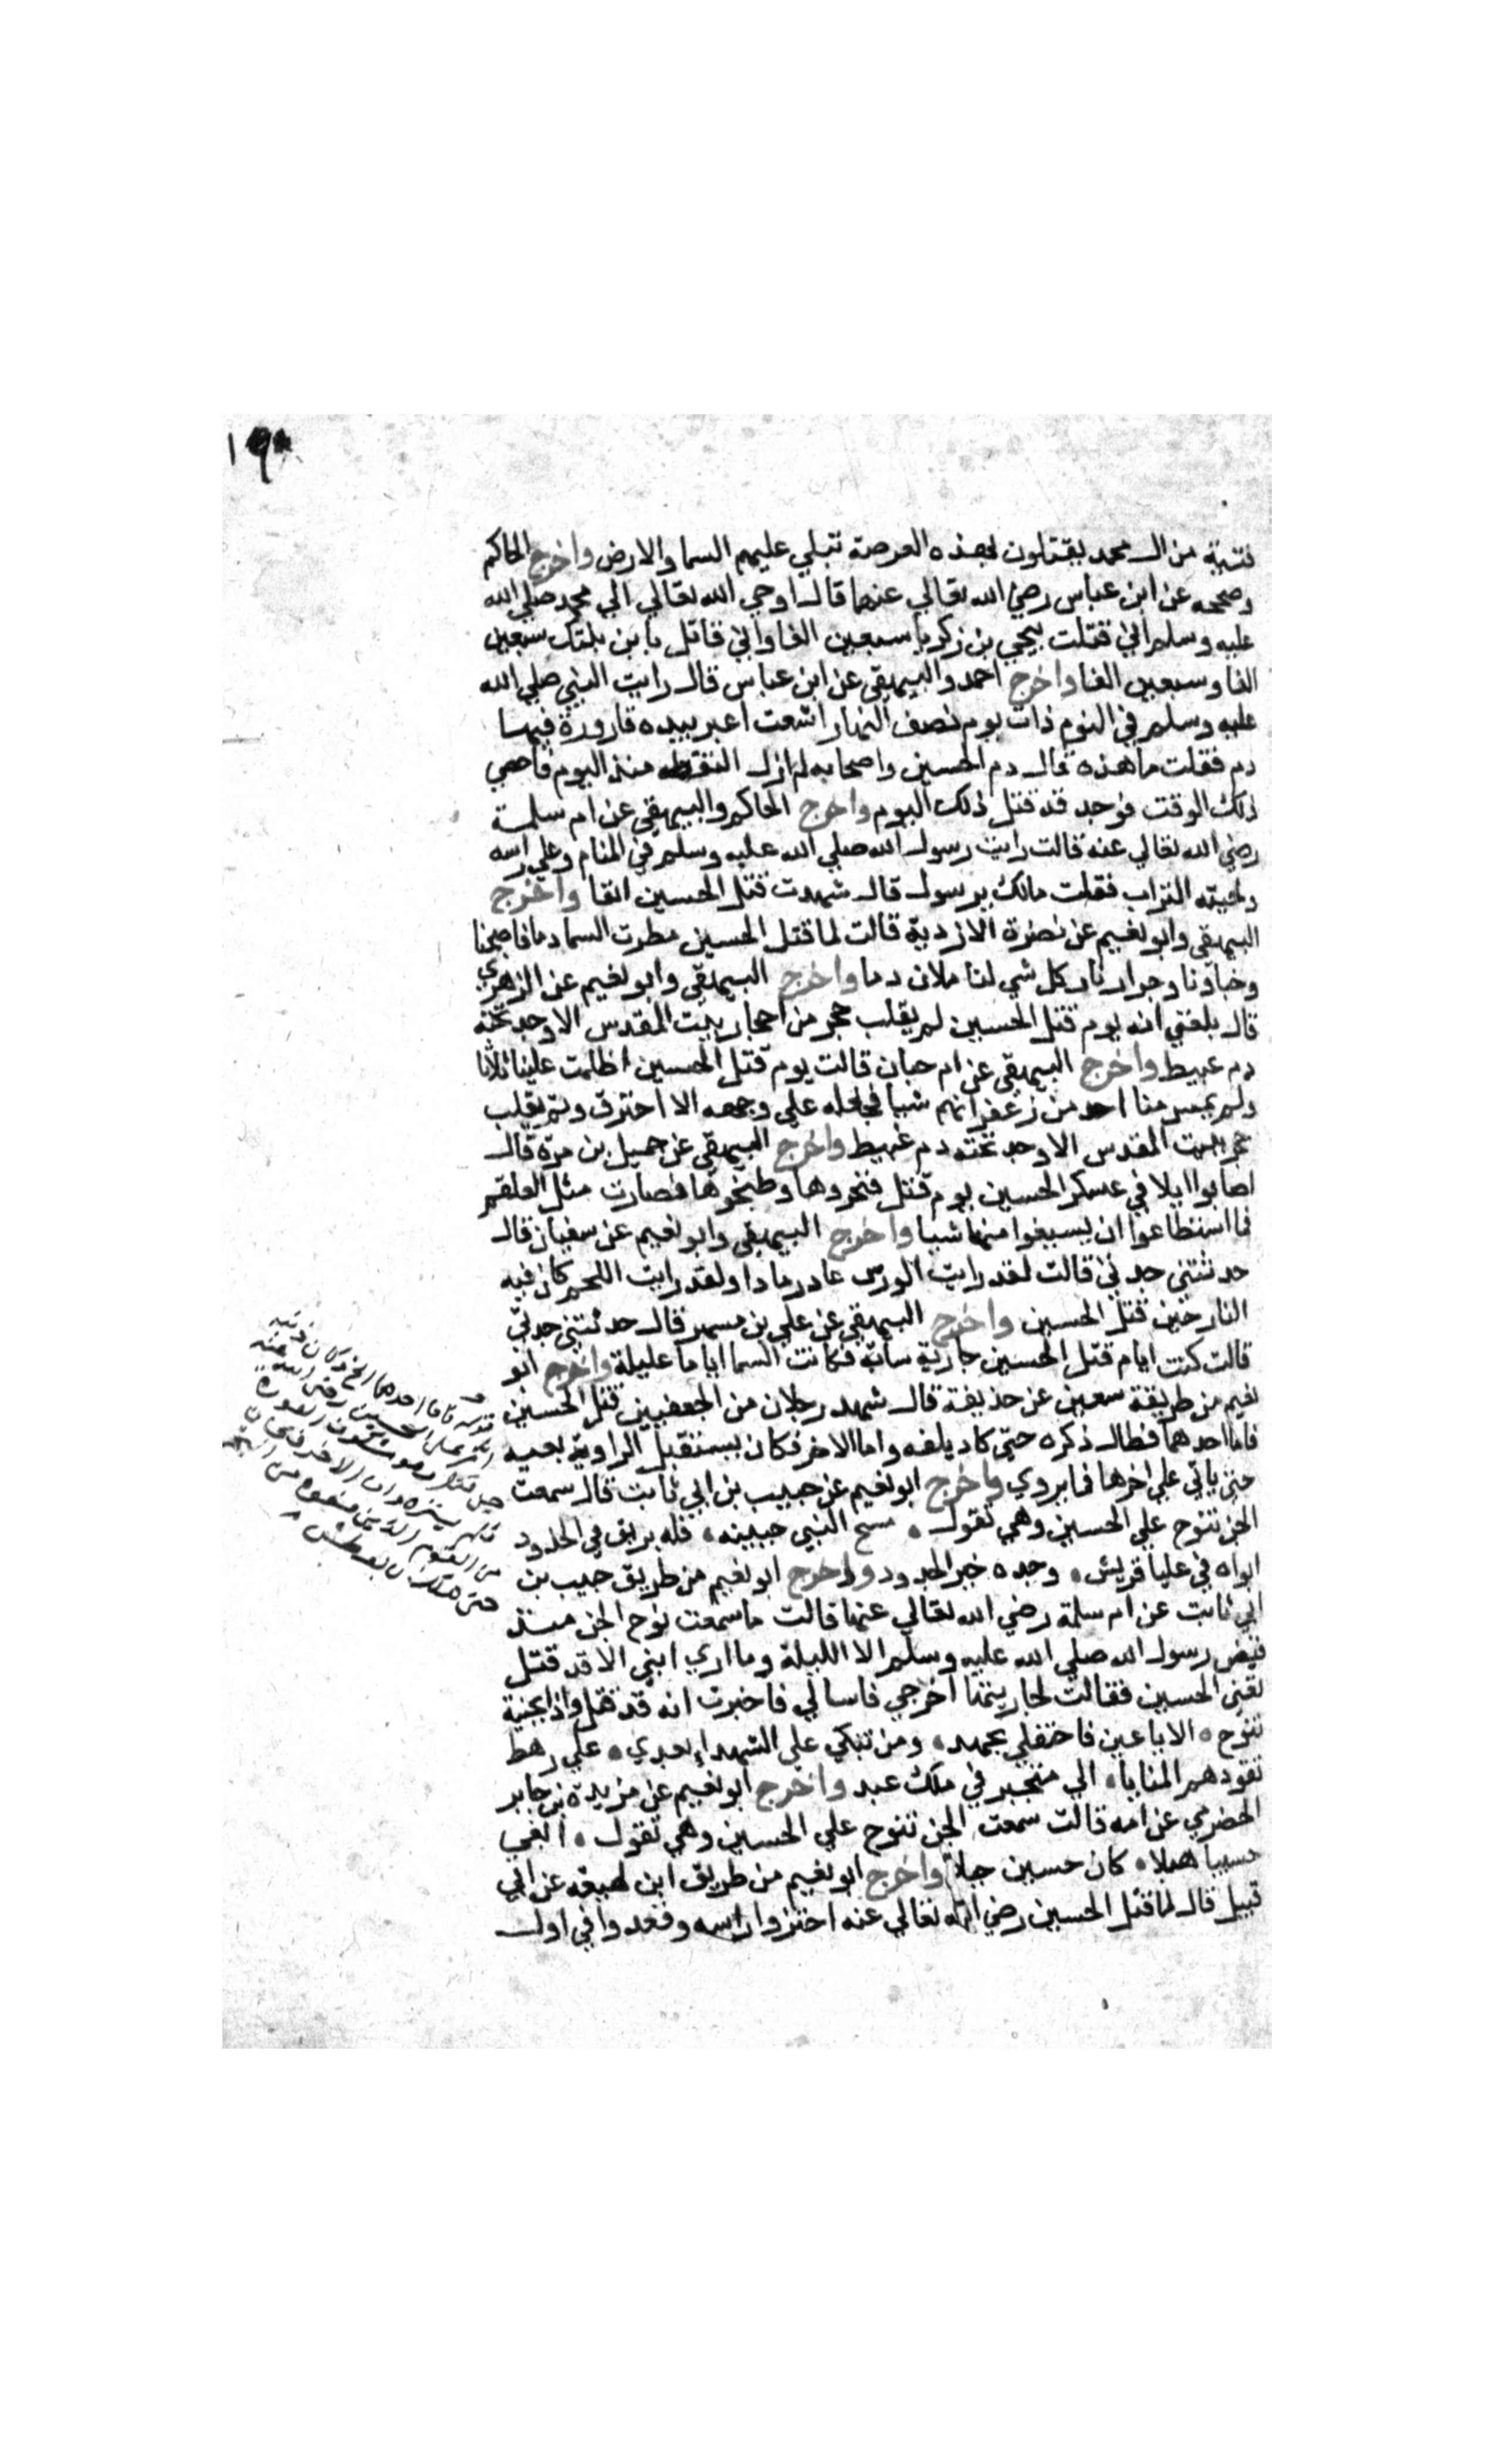 فتية من ال محمد يقتلون بهذه العرصة تبكي عليهم السما والارض واخرج الحاكم
وصححه عن ابن عباس رضي الله تعالي عنهما قال اوحي الله تعالي الي محمد صلي الله
عليه وسلم اني قتلت بيحيي بن زكريا سبعين الفا واني قاتل بابن بنتك سبعين
الفا وسبعين الفا واخرج احمد والبيهقي عن ابن عباس قال رايت النبي صلي الله
عليه وسلم في النوم ذات يوم نصف النهار اشعث اغبر بيده قارورة فيها
دم فقلت ما هذه قال دم الحسين واصحابه لم ازل التقطه منذ اليوم فاحصي
ذلك الوقت فوجد قد قتل ذلك اليوم واخرج الحاكم والبيهقي عن ام سلمة
رضي الله تعالي عنه قالت رايت رسول الله صلي الله عليه وسلم في المنام وعلي راسه
ولحيته التراب فقلت مالك يرسول قال شهدت قتل الحسين انفا واخرج
البيهقي وابو نعيم عن نضرة الازدية قالت لما قتل الحسين مطرت السما دما فاصبحنا
وخباونا وجرارنا وكل شي لنا ملان دما واخرج البيهقي وابو نعيم عن الزهري
قال بلغني انه يوم قتل الحسين لم يقلب حجر من احجار بيت المقدس الا وجد تحته
دم عبيط واخرج البيهقي عن ام حبان قالت يوم قتل الحسين اظلمت علينا ثلاثا
ولم يمس منا احد من زعفرانهم شيا فجعله علي وجهه الا احترق ولم يقلب
حجر ببيت المقدس الا وجد تحته دم عبيط واخرج البيهقي عن جميل بن مرة قال
اصابوا ابلا في عسكر الحسين يوم قتل فنحروها وطبخوها فصارت مثل العلقم
فما استطاعوا ان يسيغوا منها شيا واخرج البيهقي وابو نعيم عن سفيان قال
حدثتني جدتي قالت لقد رايت الورس عاد رمادا ولقد رايت اللحم كان فيه
النار حين قتل الحسين واخرج البيهقي عن علي بن مسهر قال حدثتني جدتي
قالت كنت ايام قتل الحسين جارية شابة فكانت السما اياما عليلة واخرج ابو
نعيم من طريقة سفين عن حذيفة قال شهد رجلان من الجعفيين قتل الحسين
فاما احدهما فطال ذكره حتي كاد يلفه واما الاخر فكان يستقبل الراوية بعيه
حتي ياتي علي اخرها فما يروي واخرج ابو نعيم عن حبيب بن ابي ثابت قال سمعت
الجن تنوح علي الحسين وهي تقول ۰ مسح النبي جبينه ۰ فله بريق في الخدود
ابواه في عليا قريش ۰ وجده خير الجدود واخرج ابو نعيم من طريق حبيب بن
ابي ثابت عن ام سلمة رضي الله تعالي عنها قالت ما سمعت نوح الجن منذ
قبض رسول الله صلي الله عليه وسلم الا الليلة وما اري ابني الا قد قتل
تعني الحسين فقالت لجاريتها اخرجي فاسالي فاخبرت انه قد قتل واذا بجنية
تنوح ۰ الا يا عين فاحتفلي بجهد ۰ ومن تبكي علي الشهداء بعدي ۰ علي رهط
تقودهم المنايا ۰ الي متجبر في ملك عبد واخرج ابو نعيم عن مزيدة بن جابر
الحضرمي عن امه قالت سمعت الجن تنوح علي الحسين وهي تقول ۰ انعي
حسينا هبلا ۰ كان حسين جبلا واخرج ابو نعيم من طريق ابن لهيعة عن ابي
قبيل قال لما قتل الحسين رضي الله تعالي عنه احتزوا راسه وقعدوا في اول
قوله فاما احدهما الخ